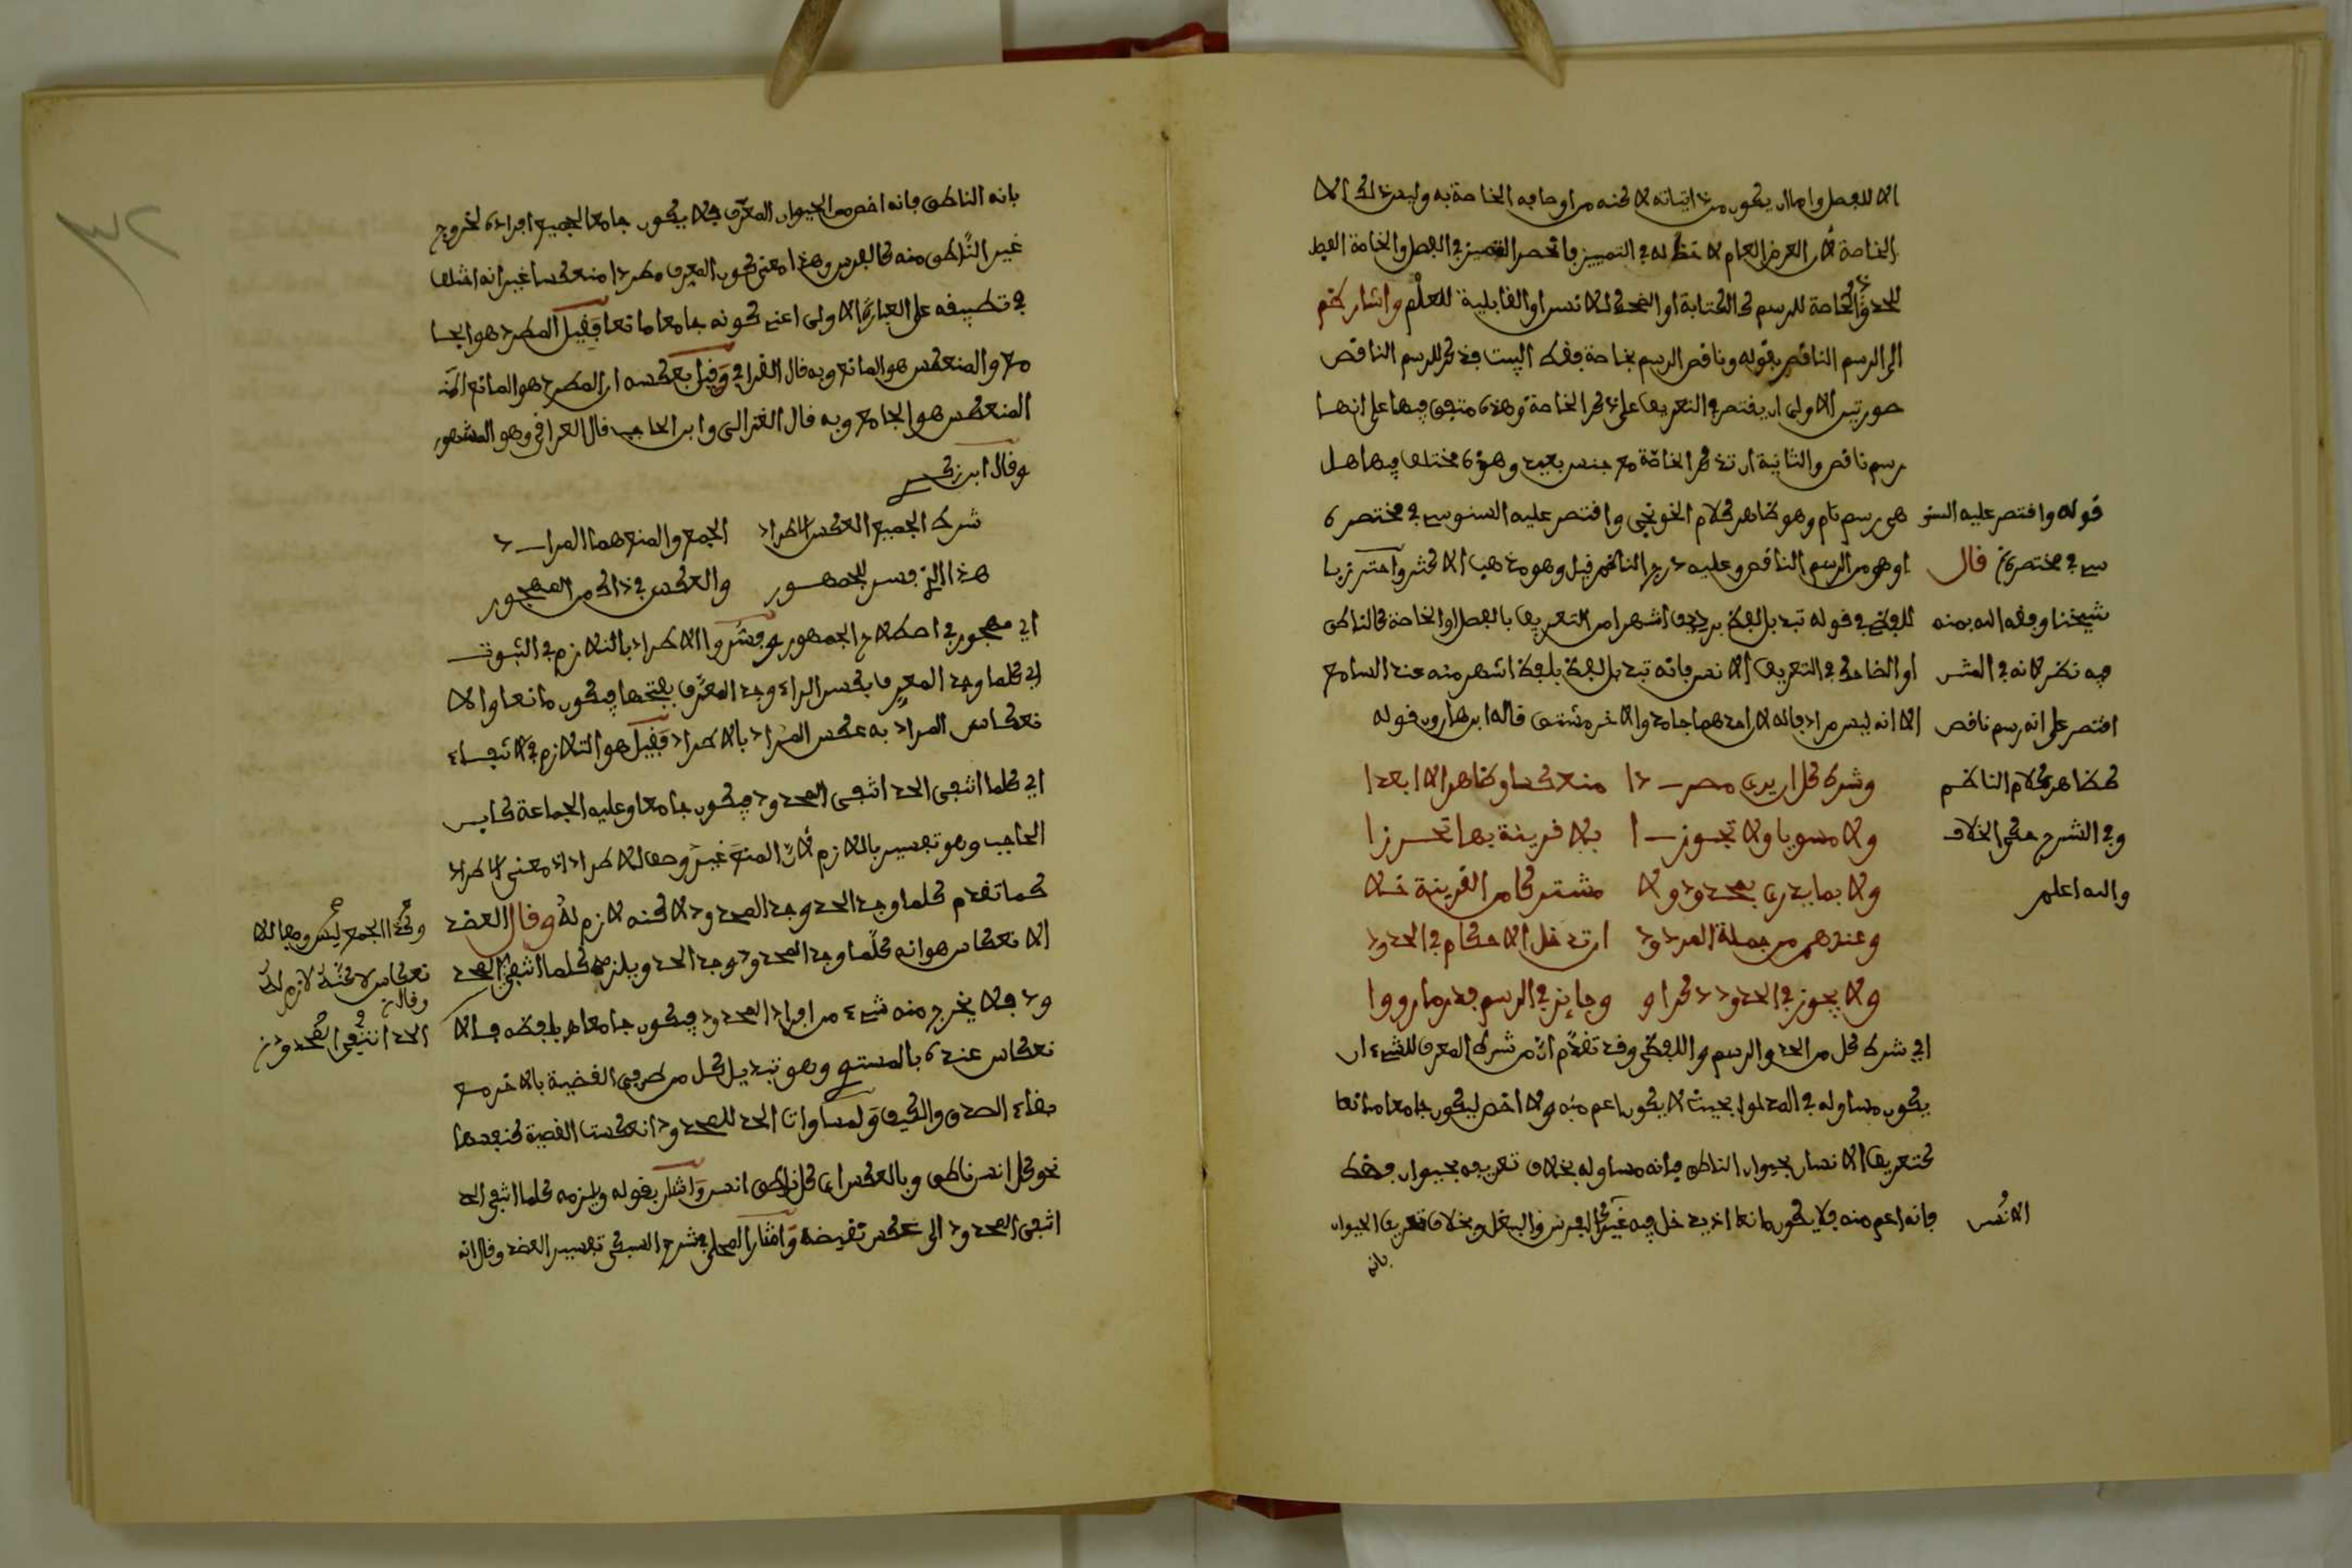 الا للفصل واما ان يكون من اثباته لاكنه من اوصافه الخاصة به وليس ذلك الا
الخاصة لان العرض العام لا حظ له في التمييز فانحصر التمييز في الفصل والخاصة الفصل
للحد والخاصة للرسم كالكتابة او الضحك للانسان او القابلية للعلم واشار
الى الرسم الناقص بقوله وناقص الرسم بخاصة فقط البيت فذكر للرسم الناقص
صورتين الاولى ان يقتصر في التعريف على ذكر الخاصة وهذه متفق فيها على انها
رسم ناقص والثانية ان تذكر الخاصة مع جنس بعيد وهذه مختلف فيها هل
هي رسم تام وهو ظاهر كلام الخونجي واقتصر عليه السنوسي في مختصره
او هو من الرسم الناقص وعليه درج الناظم قيل وهو مذهب الاكثر واحترز با
للفظي في قوله تبديل لفظ برديف اشهرا من التعريف بالفصل او الخاصة كالناطق
او الضاحك في التعريف الانس فانه تبديل لفظ بلفظ اشهر منه عند السامع
الا انه ليس مرادفا له لان احدهما جامد والاخر مشتق قاله ابن هارون قوله
وشرط كل ان يرى مطردا منعكسا وظاهرا لا ابعدا
ولا مسويا ولا تجوزا بلا قرينة بها تحرزا
ولا بما يدرى بمحدود ولا مشترك من القرينة خلا
وعندهم من جملة المردود ان تدخل الاحكام في الحدود
ولا يجوز في الحدود ذكر او وجايز في الرسم فادر ما رووا
اي شرط كل من الحد والرسم واللفظي وقد تقدم ان من شرط المعرف للشيء ان
يكون مساو له في المدلول بحيث لا يكون اعم منه ولا اخص ليكون جامعا مانعا
كتعريف الانسان بحيوان الناطق فانه مساو له بخلاف تعريفه بحيوان فقط
فانه اعم منه فلا يكون مانعا اذ يدخل فيه غير كالفرس والبغل وبخلاف تعريف الحيوان
بانه
قوله واقتصر عليه السنو
سي في مختصره قال
شيخنا وفقه الله بمنه
فيه نظر لانه في
اقتصر على انه رسم ناقص
كظاهر كلام الناظم
وفي الشرح حكى الخلاف
والله اعلم
الانس
بانه الناطق فانه اخص من الحيوان المعرف فلا يكون جامعا لجميع افراده لخروج
غير الناطق منه كالفرس وهذا معنى كون المعرف مطردا منعكسا غير انه اختلف
في تطبيقه على العبارة الاولى اعني كونه جامعا مانعا فقيل المطرد هو الجا
مع والمنعكس هو المانع وبه قال القرافي وقيل بعكسه ان المطرد هو المانع
المنعكس هو الجامع وبه قال الغزالي وابن الحاجب قال العراقي وهو المشهور
وقال ابن زكري
شرط الجميع العكس الاطراد الجمع والمنع هما المراد
هذا الذي فسر للجمهور والعكس في ذاك من المهجور
اي مهجور في اصطلاح الجمهور وفسروا الاطراد بالتلازم في الثبوت
اي كلما وجد المعرف بكسر الراء وجد المعرف بفتحها فيكون مانعا والا
نعكاس المراد به عكس المراد بالاطراد فقيل هو التلازم في الانتفاء
اي كلما انتفى الحد انتفى المحدود فيكون جامعا وعليه الجماعة كابن
الحاجب وهو تفسير باللازم لان المنع غير وصف للاطراد اذ معنى الاطراد
كما تقدم كلما وجد الحد وجد المحدود لاكنه لازم له وقال العضد
الانعكاس هو انه كلما وجد المحدود وجد الحد ويلزمه كلما انتفى الحد
ود فلا يخرج منه شيء من افراد المحدود فيكون جامعا فالا
نعكاس عنده بالمستوي وهو تبديل كل من طرفي القضية بالاخر مع
بقاء الصدق والكيف ولمساوات الحد للمحدود انعكست القضية كنفسها
نحو كل انس ناطق وبالعكس اي كل ناطق انس واشار بقوله ويلزمه كلما انتفى الحد
انتفى المحدود الى عكس نقيضه واختار المحلي في شرح السبكي تفسير العضد وقال انه
وكذا الجمع ليس وصفا للا
نعكاس لاكنه لازم له
وقال
الحد انتفى المحدود